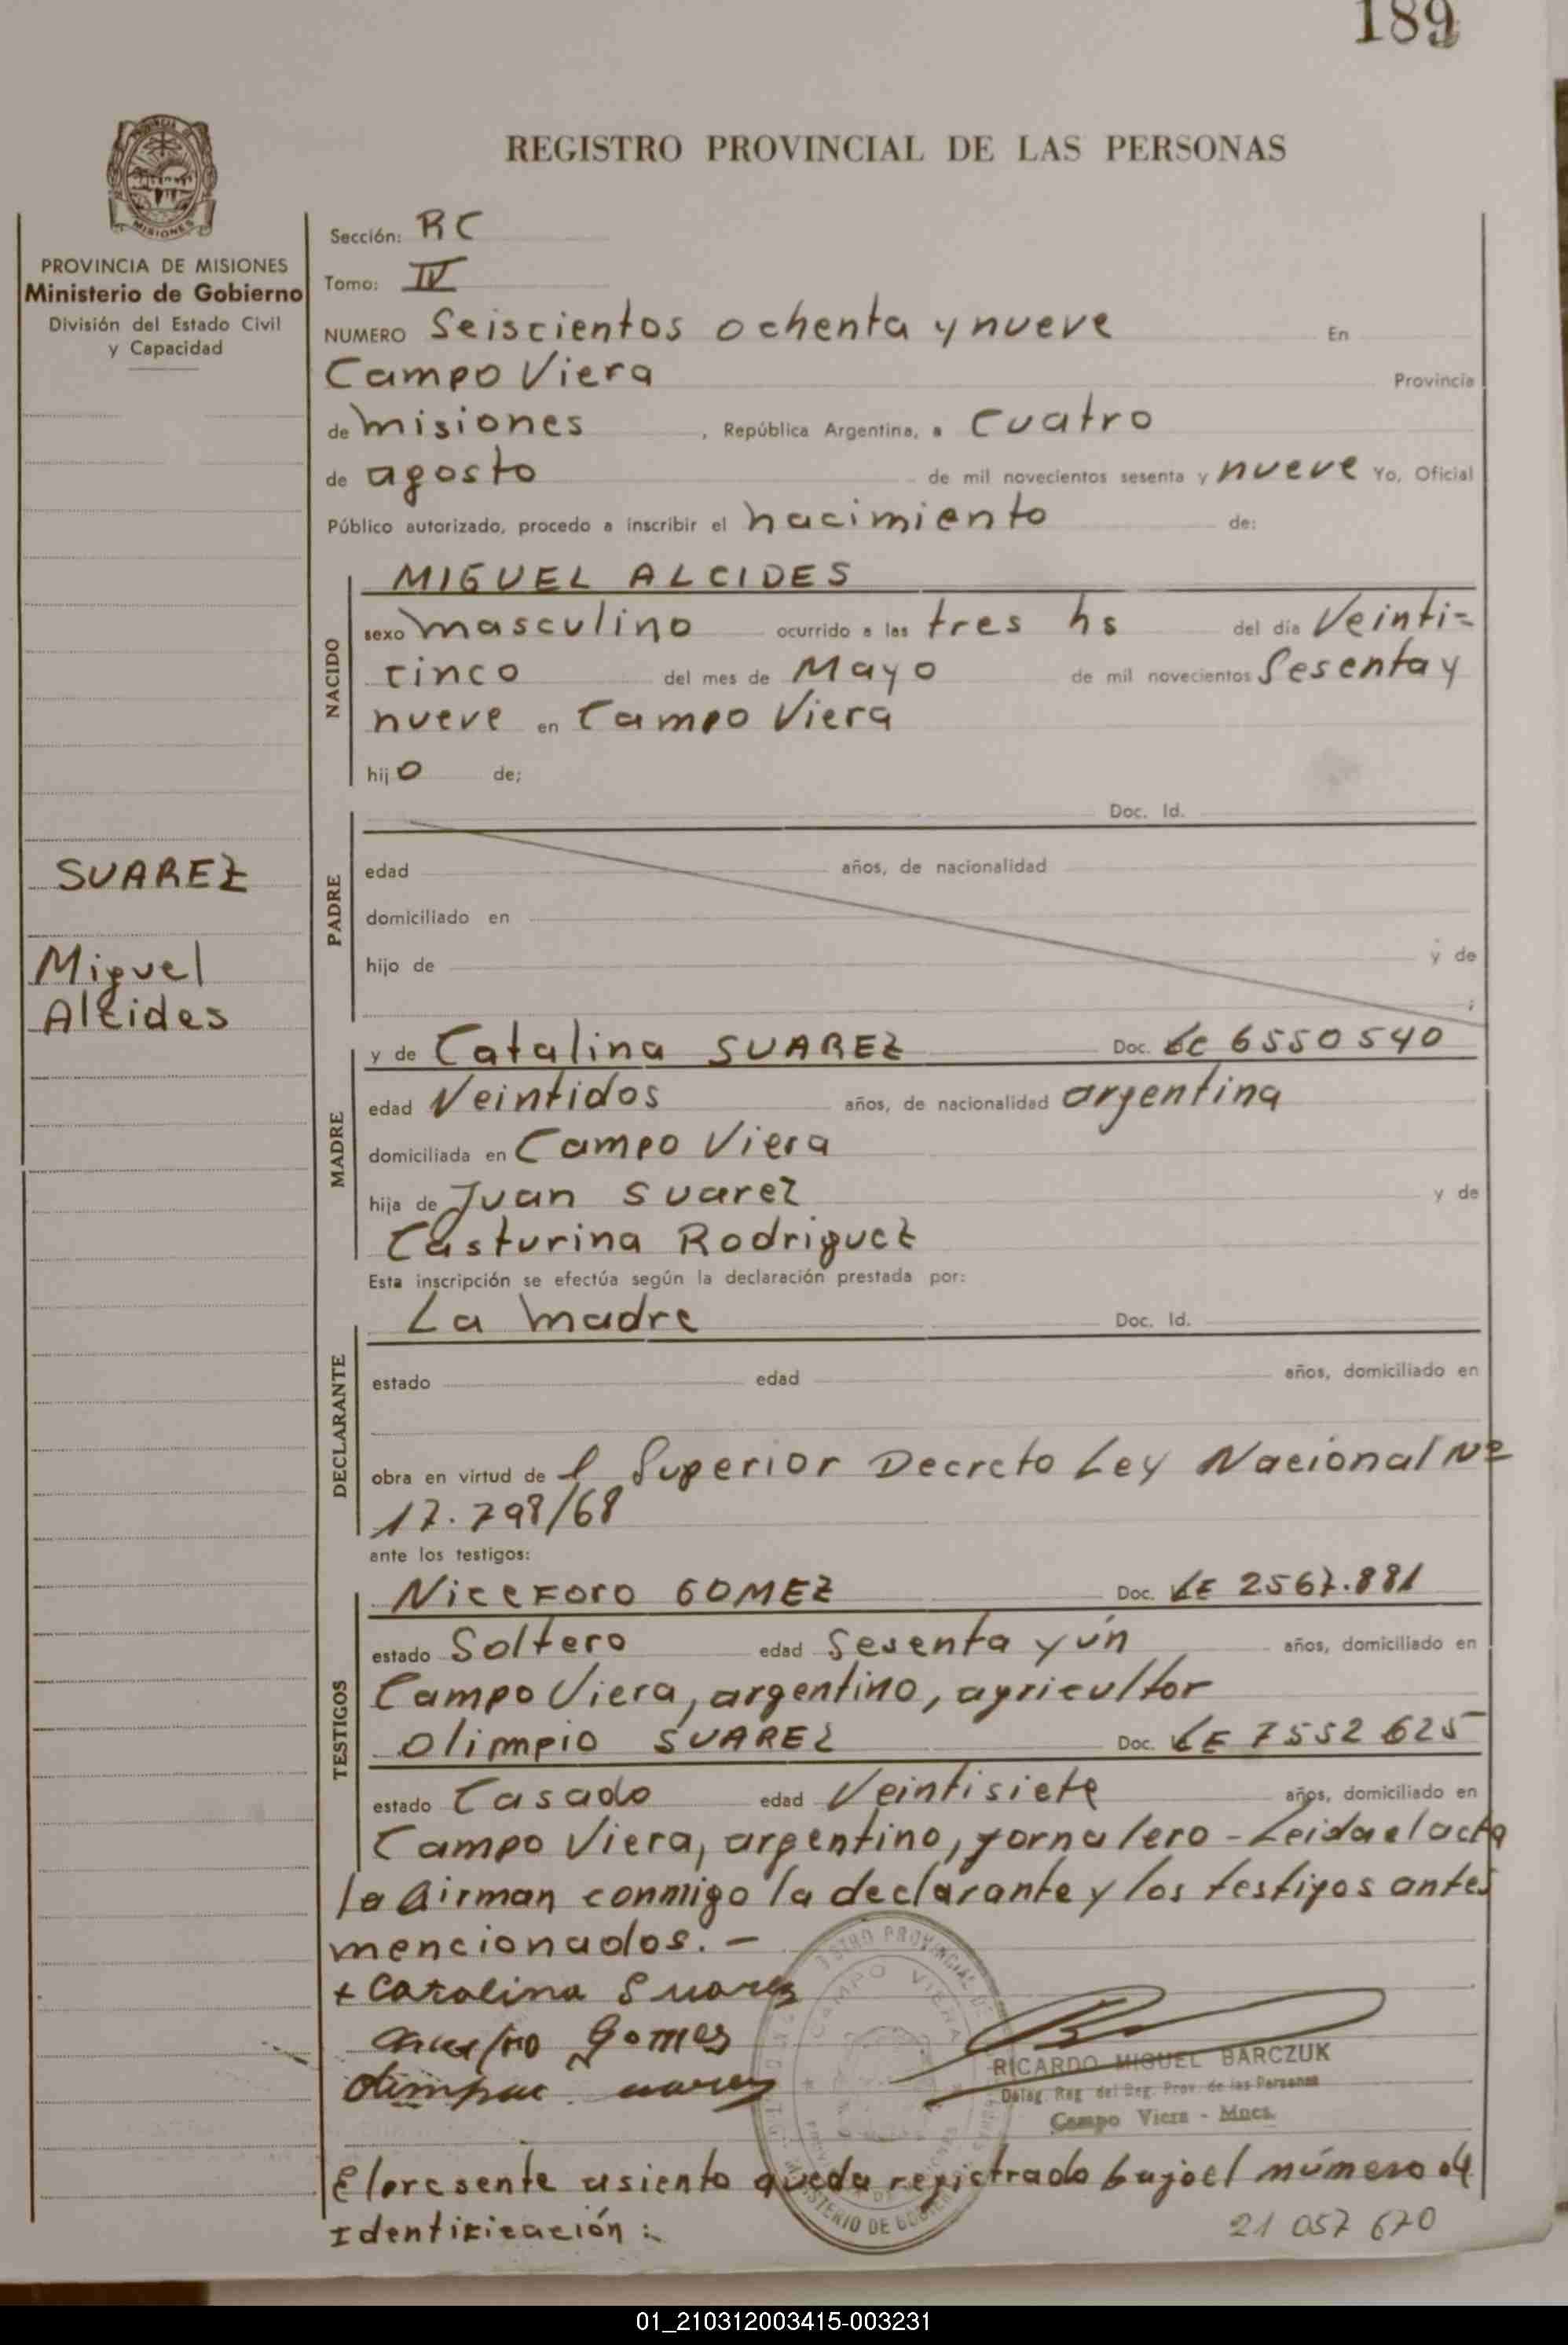 189
REGISTRO PROVINCIAL DE LAS PERSONAS
MISIONES
PROVINCIA DE MISIONES
Ministerio de Gobierno
División del Estado Civil
y Capacidad
SUAREZ
Miguel
Alcides
Sección: RC
Tomo: IV
NUMERO Seiscientos ochenta y nueve En
Campo Viera Provincia
de misiones , República Argentina, a cuatro
de agosto de mil novecientos sesenta y nueve Yo, Oficial
Público autorizado, procedo a inscribir el nacimiento de:
NACIDO
MIGUEL ALCIDES
sexo masculino ocurrido a las tres hs del día Veinti=
cinco del mes de Mayo de mil novecientos Sesenta y
nueve en Campo Viera
hijo de;
PADRE
Doc. Id.
edad años, de nacionalidad
domiciliado en
hijo de y de
;
MADRE
y de Catalina SUAREZ Doc. LC 6550540
edad Veintidos años, de nacionalidad argentina
domiciliada en Campo Viera
hija de Juan Suarez y de
Casturina Rodriguez
Esta inscripción se efectúa según la declaración prestada por:
DECLARANTE
La madre Doc. Id.
estado edad años, domiciliado en
obra en virtud de l Superior Decreto Ley Nacional Nº
17.798/68
ante los testigos:
TESTIGOS
Niceforo GOMEZ Doc. LE 2567.881
estado Soltero edad Sesenta y ún años, domiciliado en
Campo Viera, argentino, agricultor
Olimpio SUAREZ Doc. LE 7552625
estado Casado edad Veintisiete años, domiciliado en
Campo Viera, argentino, jornalero - Leida el acta
la firman conmigo la declarante y los testigos antes
mencionados. -
+ Catalina Suarez
Gomes
RICARDO MIGUEL BARCZUK
Deleg. Reg. del Reg. Prov. de las Personas
Campo Viera - Mnes.
CAMPO VIERA
El presente asiento queda registrado bajo el número de
Identificación :
21 057 670
01_210312003415-003231